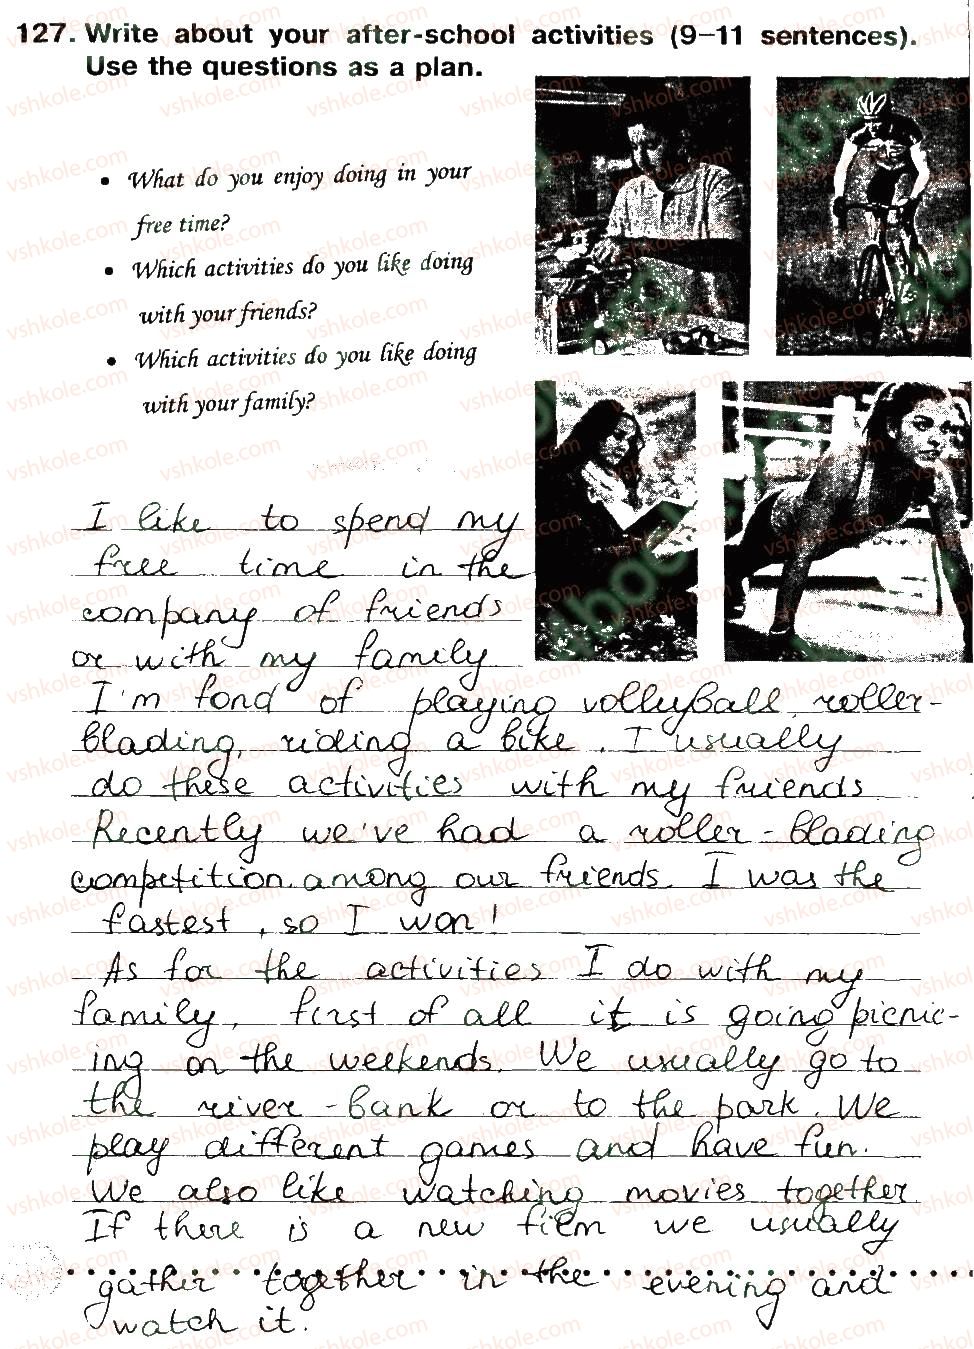 127. Write about your after-school activities (9–11 sentences).
Use the questions as a plan.
• What do you enjoy doing in your
free time?
• Which activities do you like doing
with your friends?
• Which activities do you like doing
with your family?
I like to spend my
free time in the
company of friends
or with my family
I'm fond of playing volleyball, roller-
blading, riding a bike. I usually
do these activities with my friends
Recently we've had a roller-blading
competition among our friends. I was the
fastest, so I won!
As for the activities I do with my
family, first of all it is going picnic-
ing on the weekends. We usually go to
the river-bank or to the park. We
play different games and have fun.
We also like watching movies together
If there is a new film we usually
gather together in the evening and
watch it.
vshkole.com